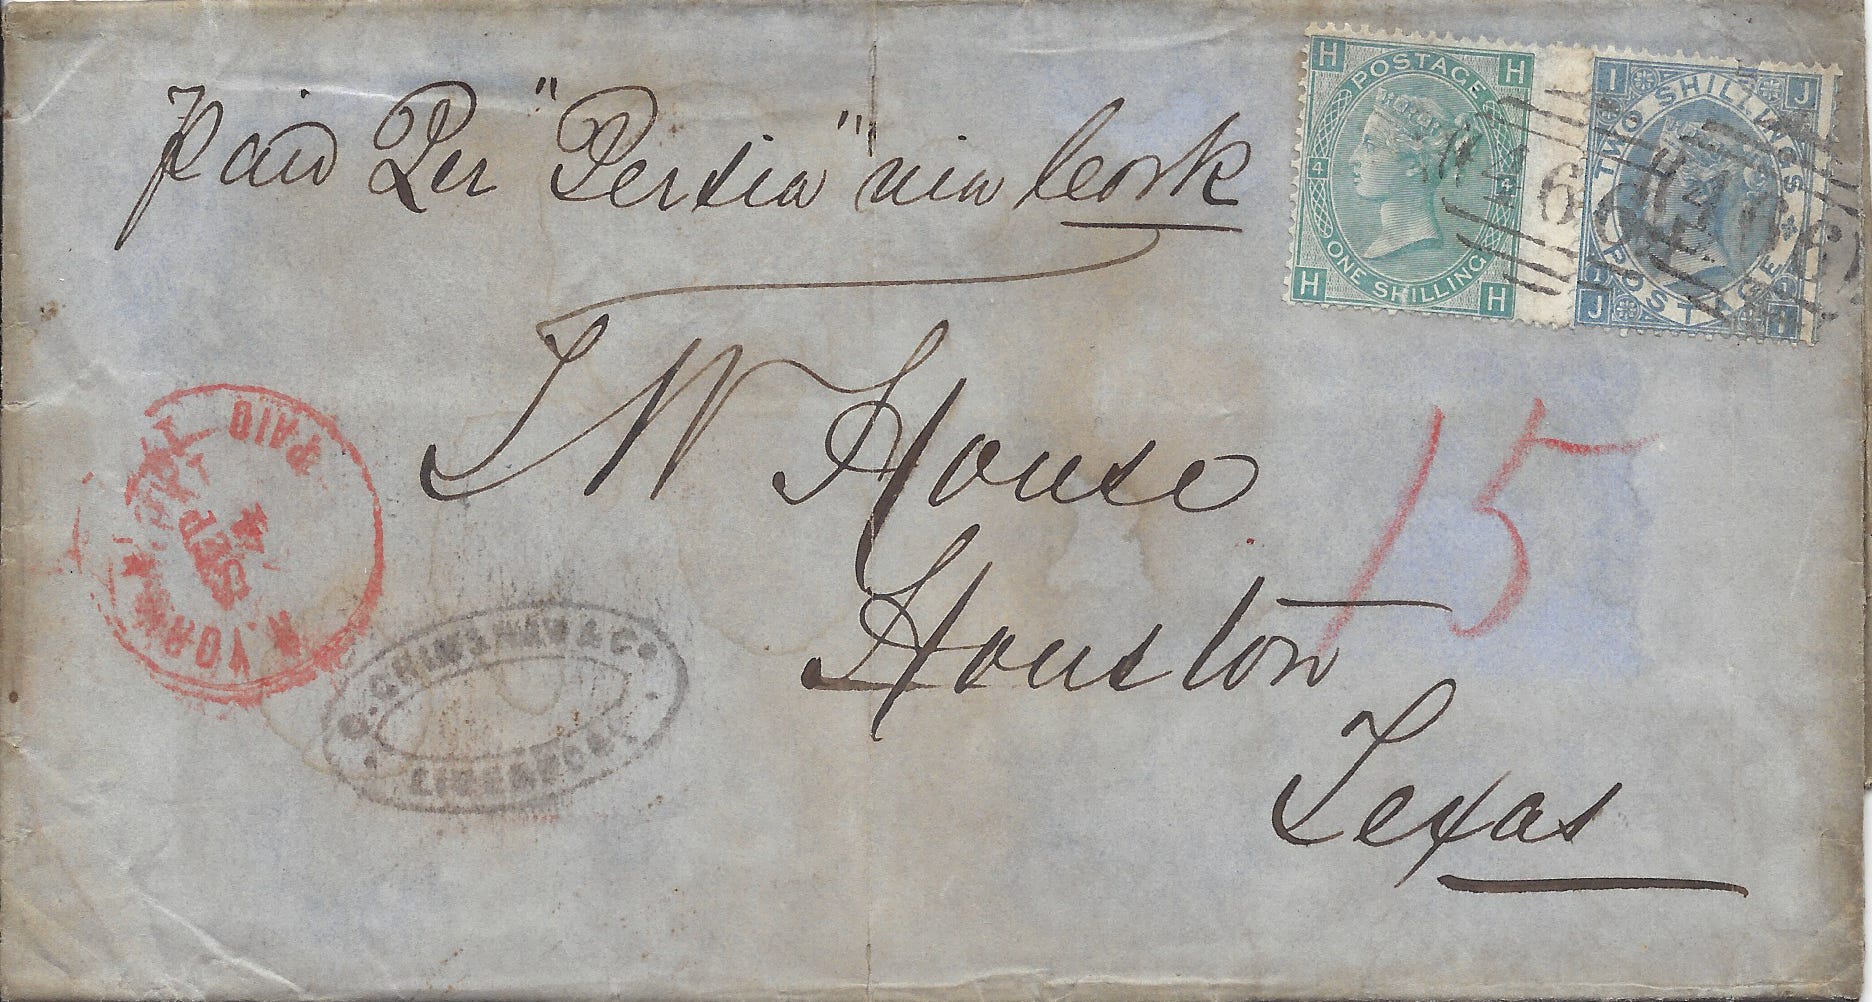 Paid Per "Persia" via Cork
T W House
Houston
Texas
15
H H
POSTAGE
4 4
ONE SHILLING
H H
I J
TWO SHILLINGS
POSTAGE
J I
466
466
N. YORK AM. PKT
PAID
SEP
CRIMSHAW & Co
LIVERPOOL